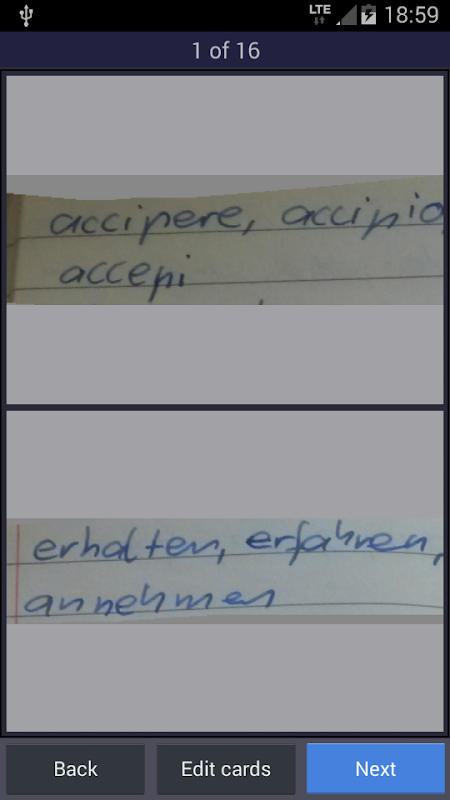 LTE 18:59
1 of 16
accipere, accipio
accepi
erhalten, erfahren,
annehmen
Back Edit cards Next